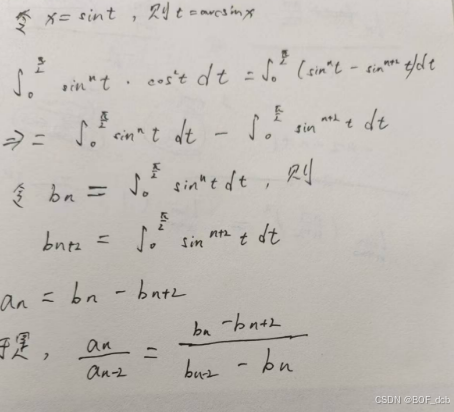 令 x = sint , 则 t = arcsinx
∫₀^{π/2} sinⁿt · cos²t dt = ∫₀^{π/2} (sinⁿt - sinⁿ⁺²t)dt
⇒ = ∫₀^{π/2} sinⁿt dt - ∫₀^{π/2} sinⁿ⁺² t dt
令 bn = ∫₀^{π/2} sinⁿt dt , 则
bn+2 = ∫₀^{π/2} sinⁿ⁺² t dt
an = bn - bn+2
于是, an/an-2 = (bn - bn+2)/(bn-2 - bn)
CSDN @BOF_dcb